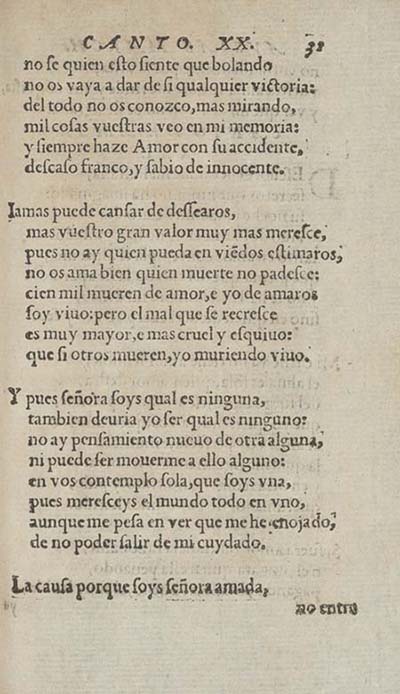 CANTO. XX. 38
no se quien esto siente que bolando
no os vaya a dar de si qualquier victoria:
del todo no os conozco, mas mirando,
mil cosas vuestras veo en mi memoria:
y siempre haze Amor con su accidente,
descaso franco, y sabio de innocente.
Iamas puede cansar de dessearos,
mas vuestro gran valor muy mas meresce,
pues no ay quien pueda en viẽdos estimaros,
no os ama bien quien muerte no padesce:
cien mil mueren de amor, e yo de amaros
soy viuo: pero el mal que se recresce
es muy mayor, e mas cruel y esquiuo:
que si otros mueren, yo muriendo viuo.
Y pues señora soys qual es ninguna,
tambien deuria yo ser qual es ninguno:
no ay pensamiento nueuo de otra alguna,
ni puede ser mouerme a ello alguno:
en vos contemplo sola, que soys vna,
pues meresceys el mundo todo en vno,
aunque me pesa en ver que me he enojado,
de no poder salir de mi cuydado.
La causa porque soys señora amada,
no entro